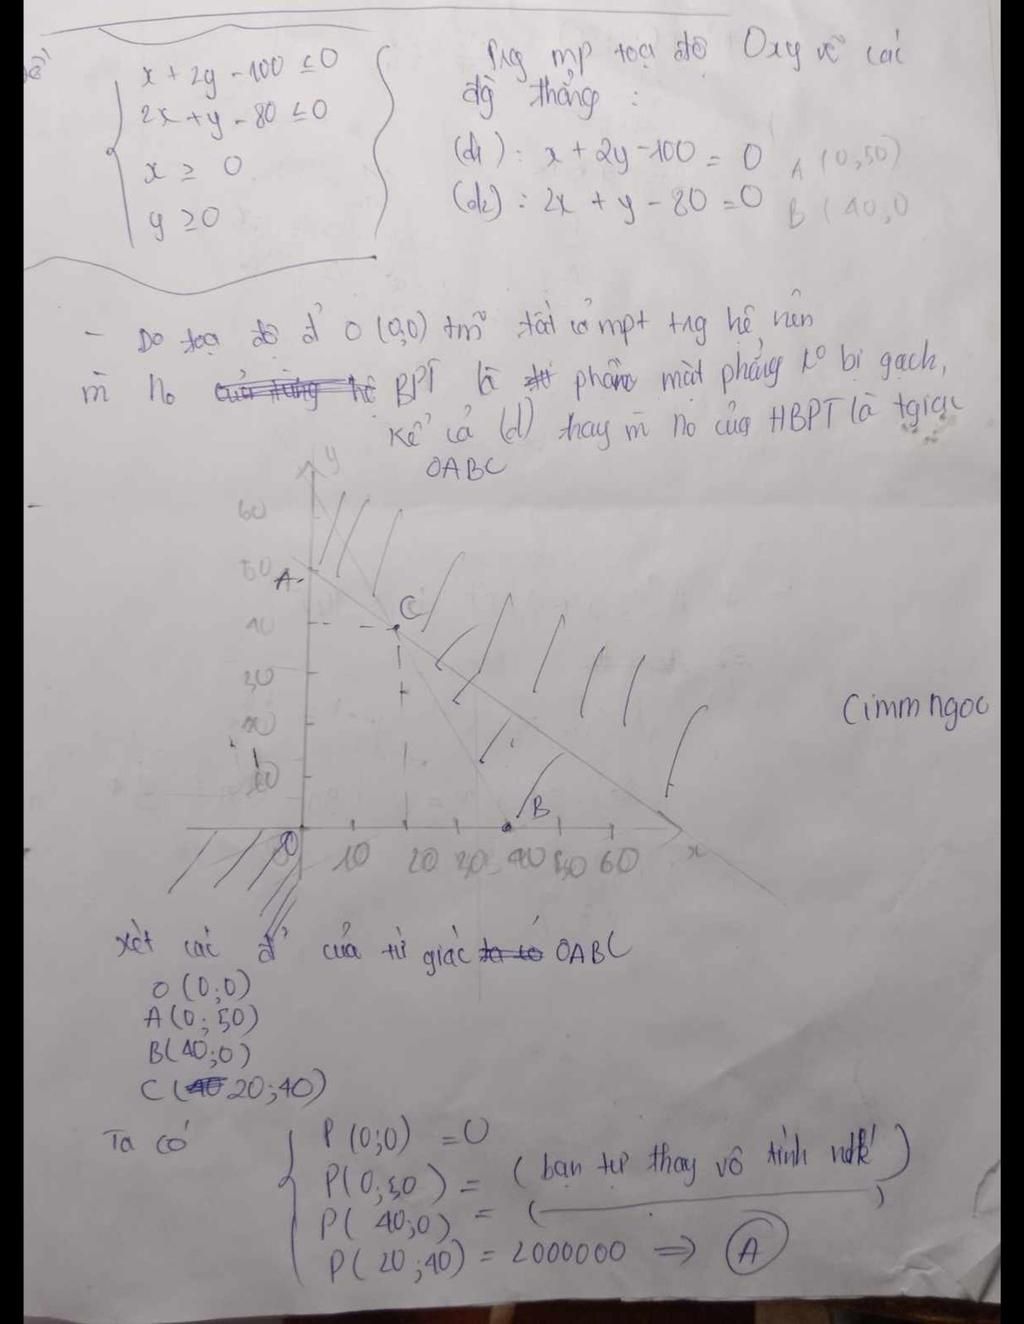 x + 2y - 100 ≤ 0
2x + y - 80 ≤ 0
x ≥ 0
y ≥ 0
Trg mp toạ độ Oxy vẽ các
đg thẳng :
(d1) : x + 2y - 100 = 0 A (0,50)
(d2) : 2x + y - 80 = 0 B (40,0
- Do toạ độ đ' O (0,0) tm tất cả mpt trg hệ nên
m no BPT là phần mặt phẳng ko bị gạch,
Kể cả (d) hay m no của HBPT là tgiác
OABC
y
60
50 A
C
40
30
20
10
B
O 10 20 30 40 50 60 x
Cimm ngoc
xét các đ' của tứ giác OABC
O (0;0)
A (0; 50)
B (40;0)
C ( 20;40)
Ta có
P (0;0) = 0
P(0;50) = (bạn tự thay vô tính nđk')
P( 40;0) = ( )
P( 20;40) = 2000000 => A